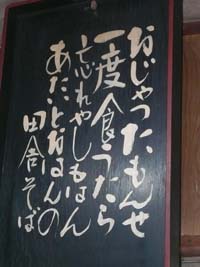 おじゃったもんせ
一度食うたら
忘れやしもはん
あたいどおまんの
田舎そば